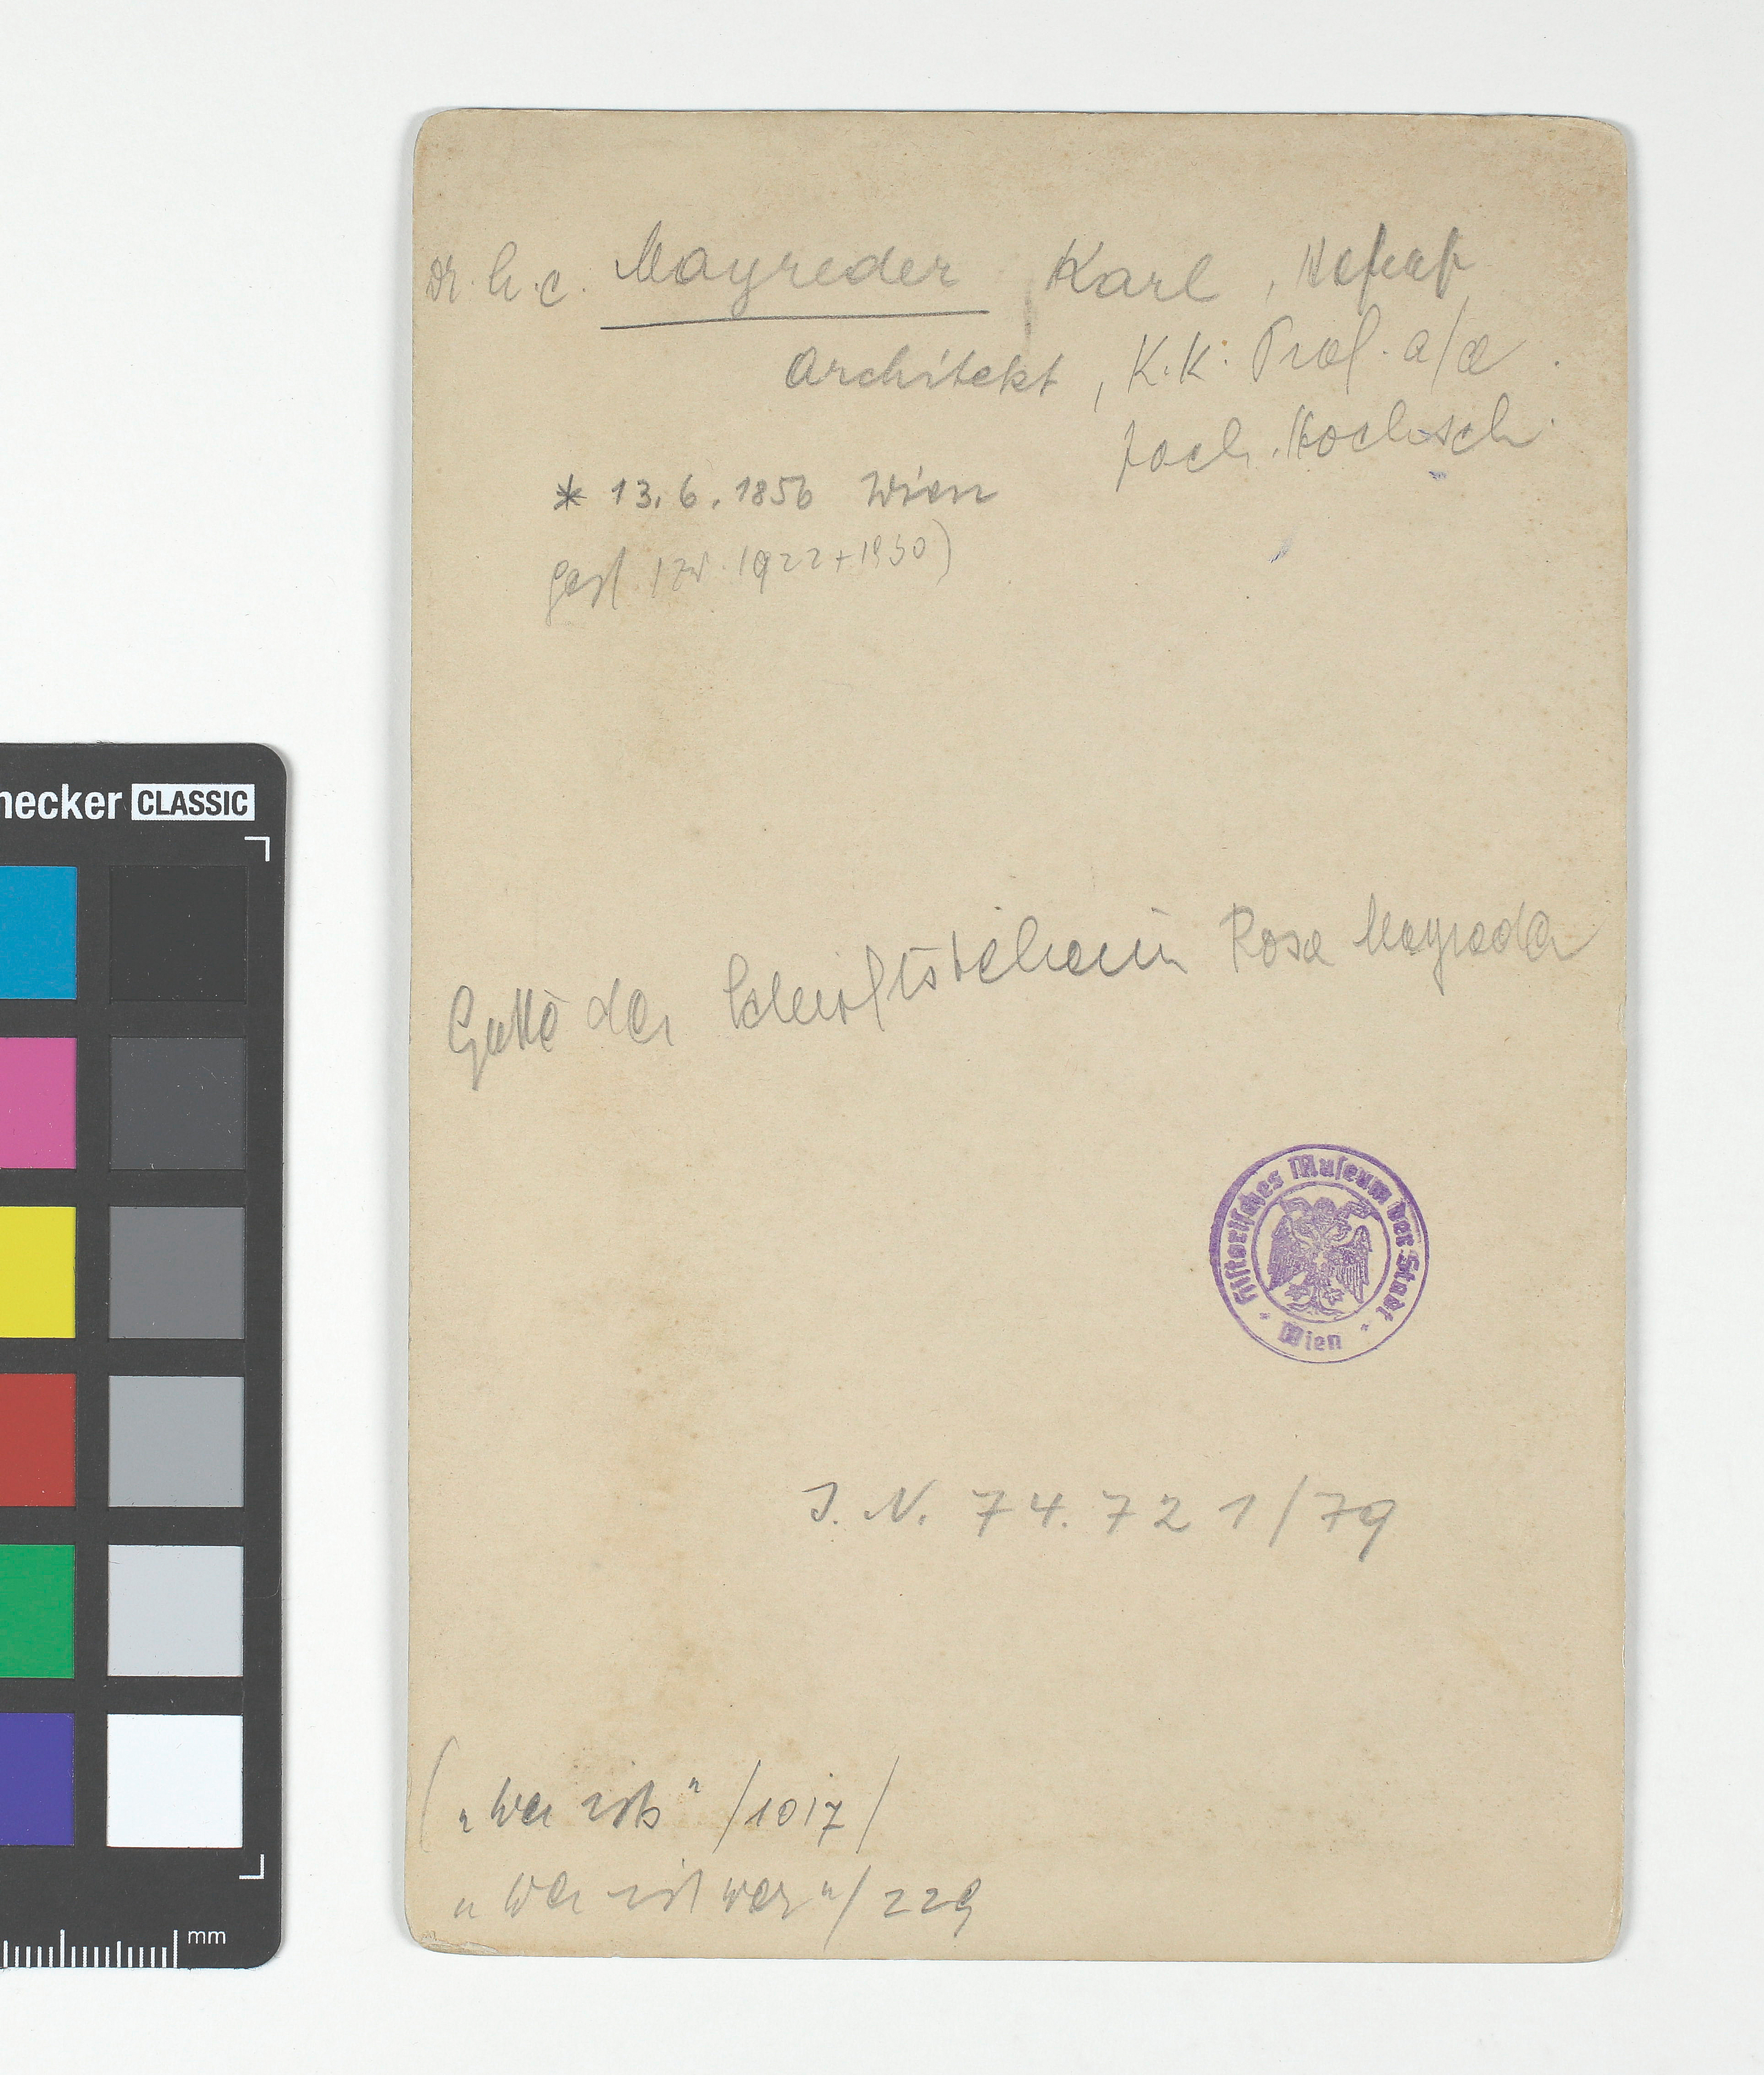 Dr. h. c. Mayreder Karl, Hofrat
Architekt, K. K. Prof. a/d.
Tech. Hochsch.
* 13.6.1856 Wien
gest. (zw. 1922 + 1930)
Gatte der Schriftstellerin Rosa Mayreder
Historisches Museum der Stadt
Wien
I. N. 74.721/79
("Wer ists" /1017/
"Wer ist wer"/229
hecker CLASSIC
mm